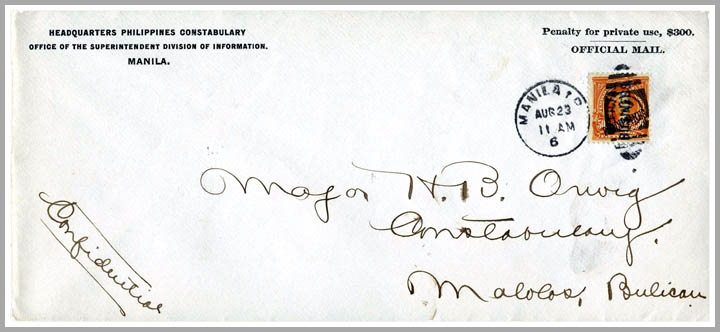 HEADQUARTERS PHILIPPINES CONSTABULARY
OFFICE OF THE SUPERINTENDENT DIVISION OF INFORMATION.
MANILA.
Penalty for private use, $300.
OFFICIAL MAIL.
MANILA
AUG 23
11 AM
6
Major H. B. Orwig
Constabulary.
Malolos, Bulican
Confidential